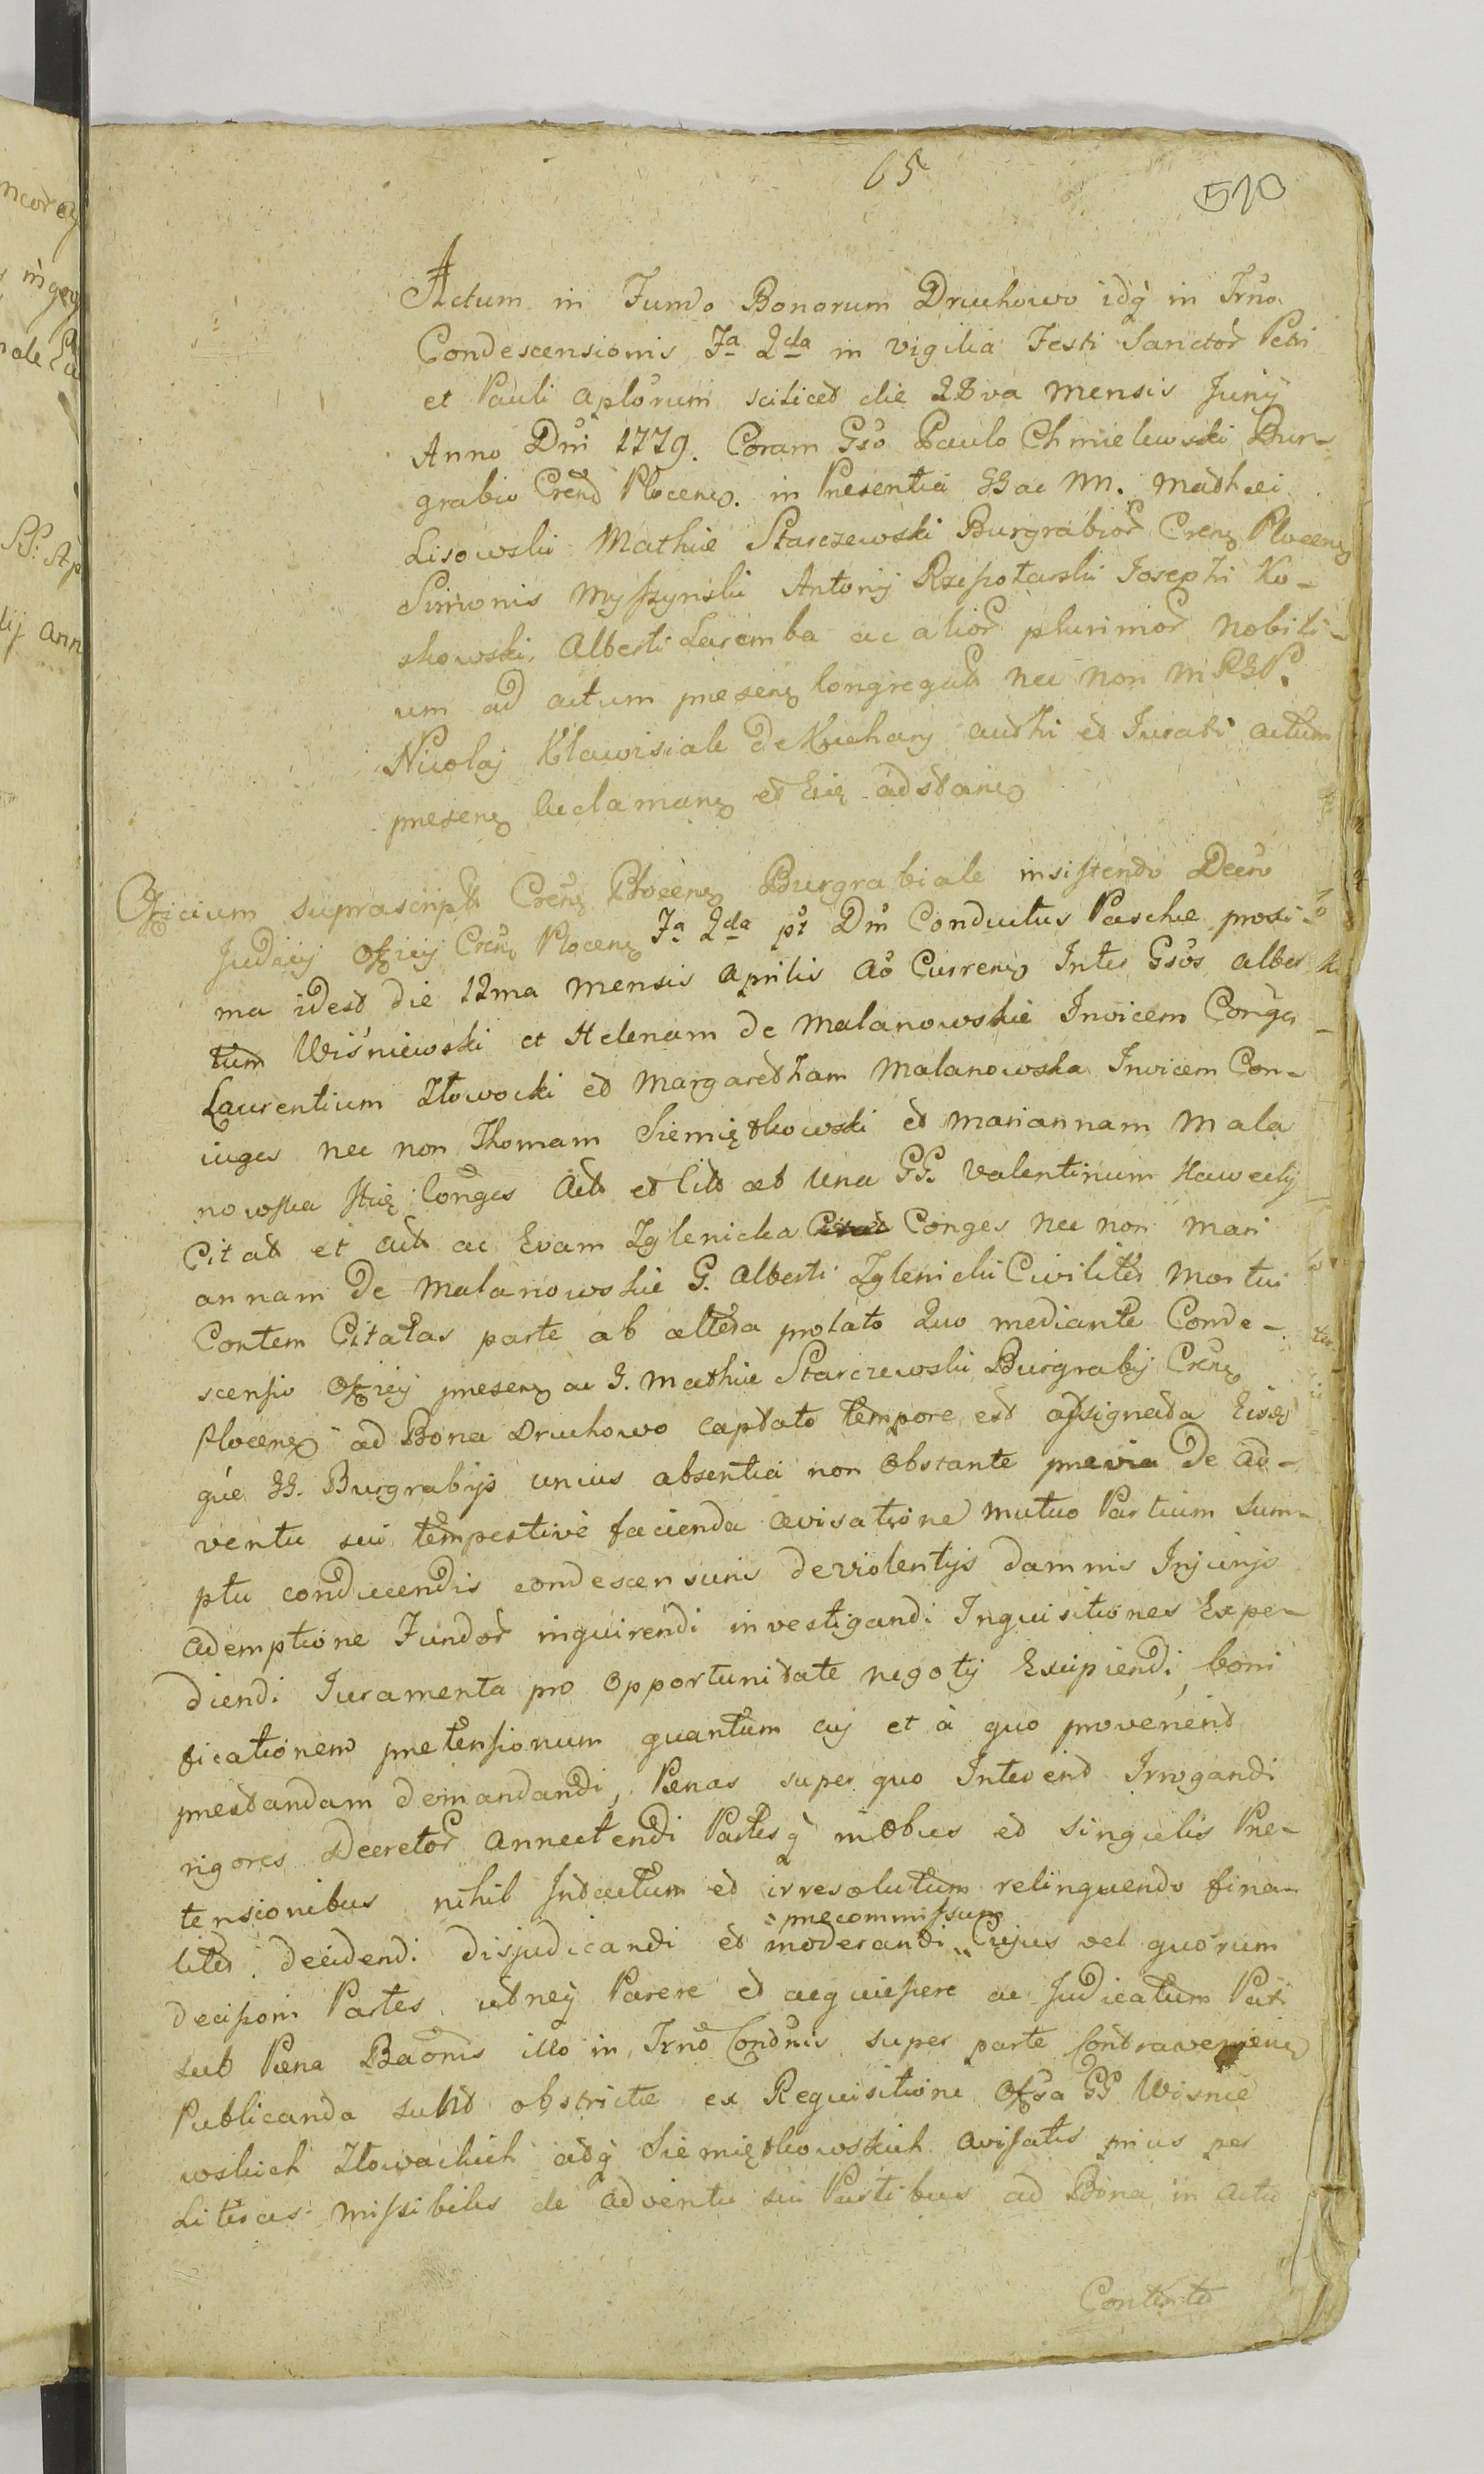 65
510
Actum in Fundo Bonorum Druchowo idq̀ in Trno
Condescensionis Fa 2da in vigilia Festi Sanctor Petri
et Pauli aplorum scilicet die 28va mensis Junÿ
Anno Dni 1779. Coram Gso Paulo Chmielewski Bur-
grabio Crend Plocens. in Presentia GG ac NN. Mathei
Lisowski Mathie Starczewski Burgrabior Crens Plocens
Simonis Myszynski Antonij Rzeszotarski Josephi Ko-
skowski, Alberti Zaremba ac alior plurimor nobili-
um ad actum presens Congregat nec non M
Nicolaj de Kuchary authi et Jurati actum
presens acclamans et adstans
Officium suprascript Crens Plocens Burgrabiale insistendo Decro
Judicij Officij Crens Plocens Fa 2da pt Dni Conductus Pasche proxi-
ma idest die 12ma mensis Aprilis ao Currens Inter Gsos alber
tum Wiśniewski et Helenam de Malanowskie Invicem Conges
Laurentium Złowocki et Margaretham Malanowska Invicem Con-
iuges nec non Thomam Siemiętkowski et mariannam Mala
nowska Conges Act et Cit ab una GG. Valentinum
Citat et Act ac Evam Zglenicka Conges nec non Mari
annam De Malanowskie G. Alberti Zglenicki Civiliter Mortui
Contem Citatas parte ab altera prolato Quo mediante Conde-
scensio Officij presens ac G. Mathie Starczewski Burgrabij Crens
Plocens ad Bona Druchowo captato tempore est assignata Eisd
que GG. Burgrabijs unius absentia non Obstante previa De ad-
ventu sui tempestive facienda avisatione mutuo Partium sum-
ptu conducendis condescensuris de violentijs damnis Injurijs
ademptione Fundor inquirendi investigandi Inquisitiones Expe-
diendi Juramenta pro Opportunitate negotij Excipiendi, boni
ficationem pretensionum quantum cuj et à quo provenend
prestandam demandandi, Penas super quo Intevend Irrogandi
rigores Decretor annectendi Partesq̀ in obus et singulis Pre-
tensionibus nihil Intactum et irresolutum relinquendo fina-
precommissum
liter decidendi disjudicandi et moderandi Cujus vel quorum
decisoni Partes utneq̀ Parere et acquiescere ac Judicatum Pati
sub Pena Baonis illo in Trno Condnis super parte Contraveniens
Publicanda sunt obstricte ex Requisitione GG Wisnie
wskich Złowockich adq̀ Siemiętkowskich avisatis prius per
Literas missibiles de adventu sui Partibus ad Bona in actu
Contentor